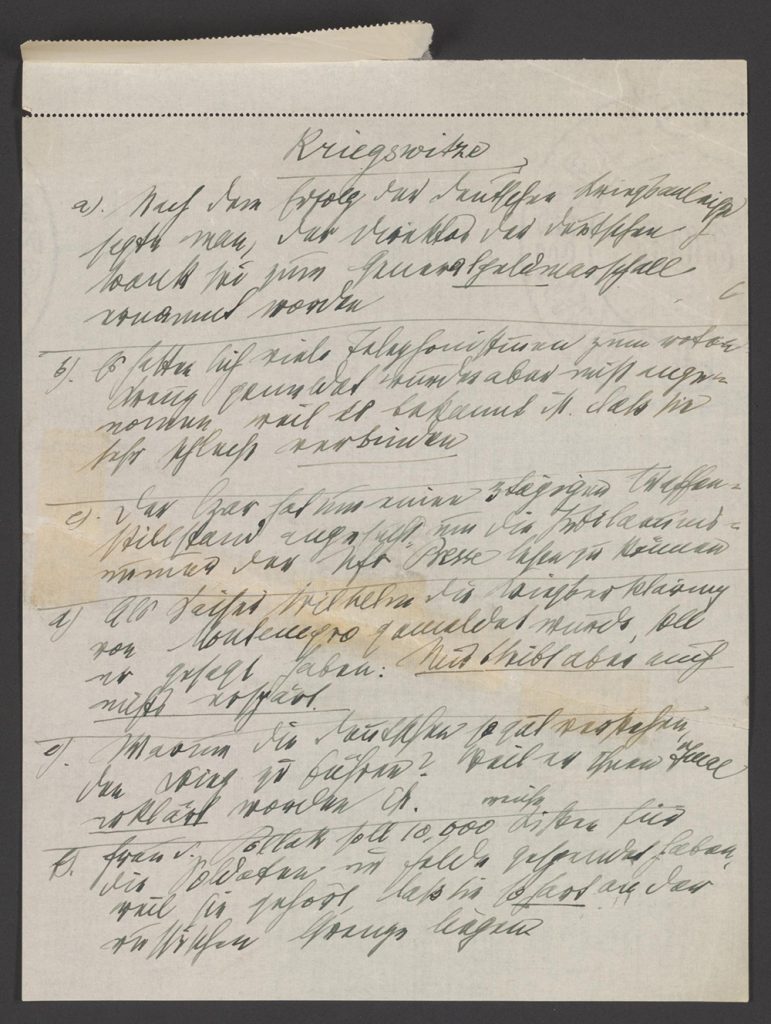 Kriegswitze
a). Nach dem Erfolg der deutschen Kriegsanleihe
sagte man, der Direktor der deutschen
Bank sei zum Generalfeldmarschall
ernannt worden
b). Es hatten sich viele Telephonistinnen zum roten
Kreuz gemeldet wurden aber nicht ange-
nomen, weil es bekannt ist, daß sie
sehr schlecht verbinden
c). Der Czar hat um einen 3tägigen Waffen-
stillstand angesucht, um die Jubiläums-
numer der Presse lesen zu können
d) Als Kaiser Wilhelm die Kriegserklärung
von Montenegro gemeldet wurde, soll
er gesagt haben: Mir bleibt aber auch
nichts erspart.
e). Warum die Deutschen so gut verstehen,
den Krieg zu führen? Weil er ihnen
erklärt worden ist.
f). Frau v. Pollak soll 10,000 weiche Kissen für
die Soldaten im Felde gespendet haben,
weil sie gehört, daß sie so hart an der
russischen Grenze liegen